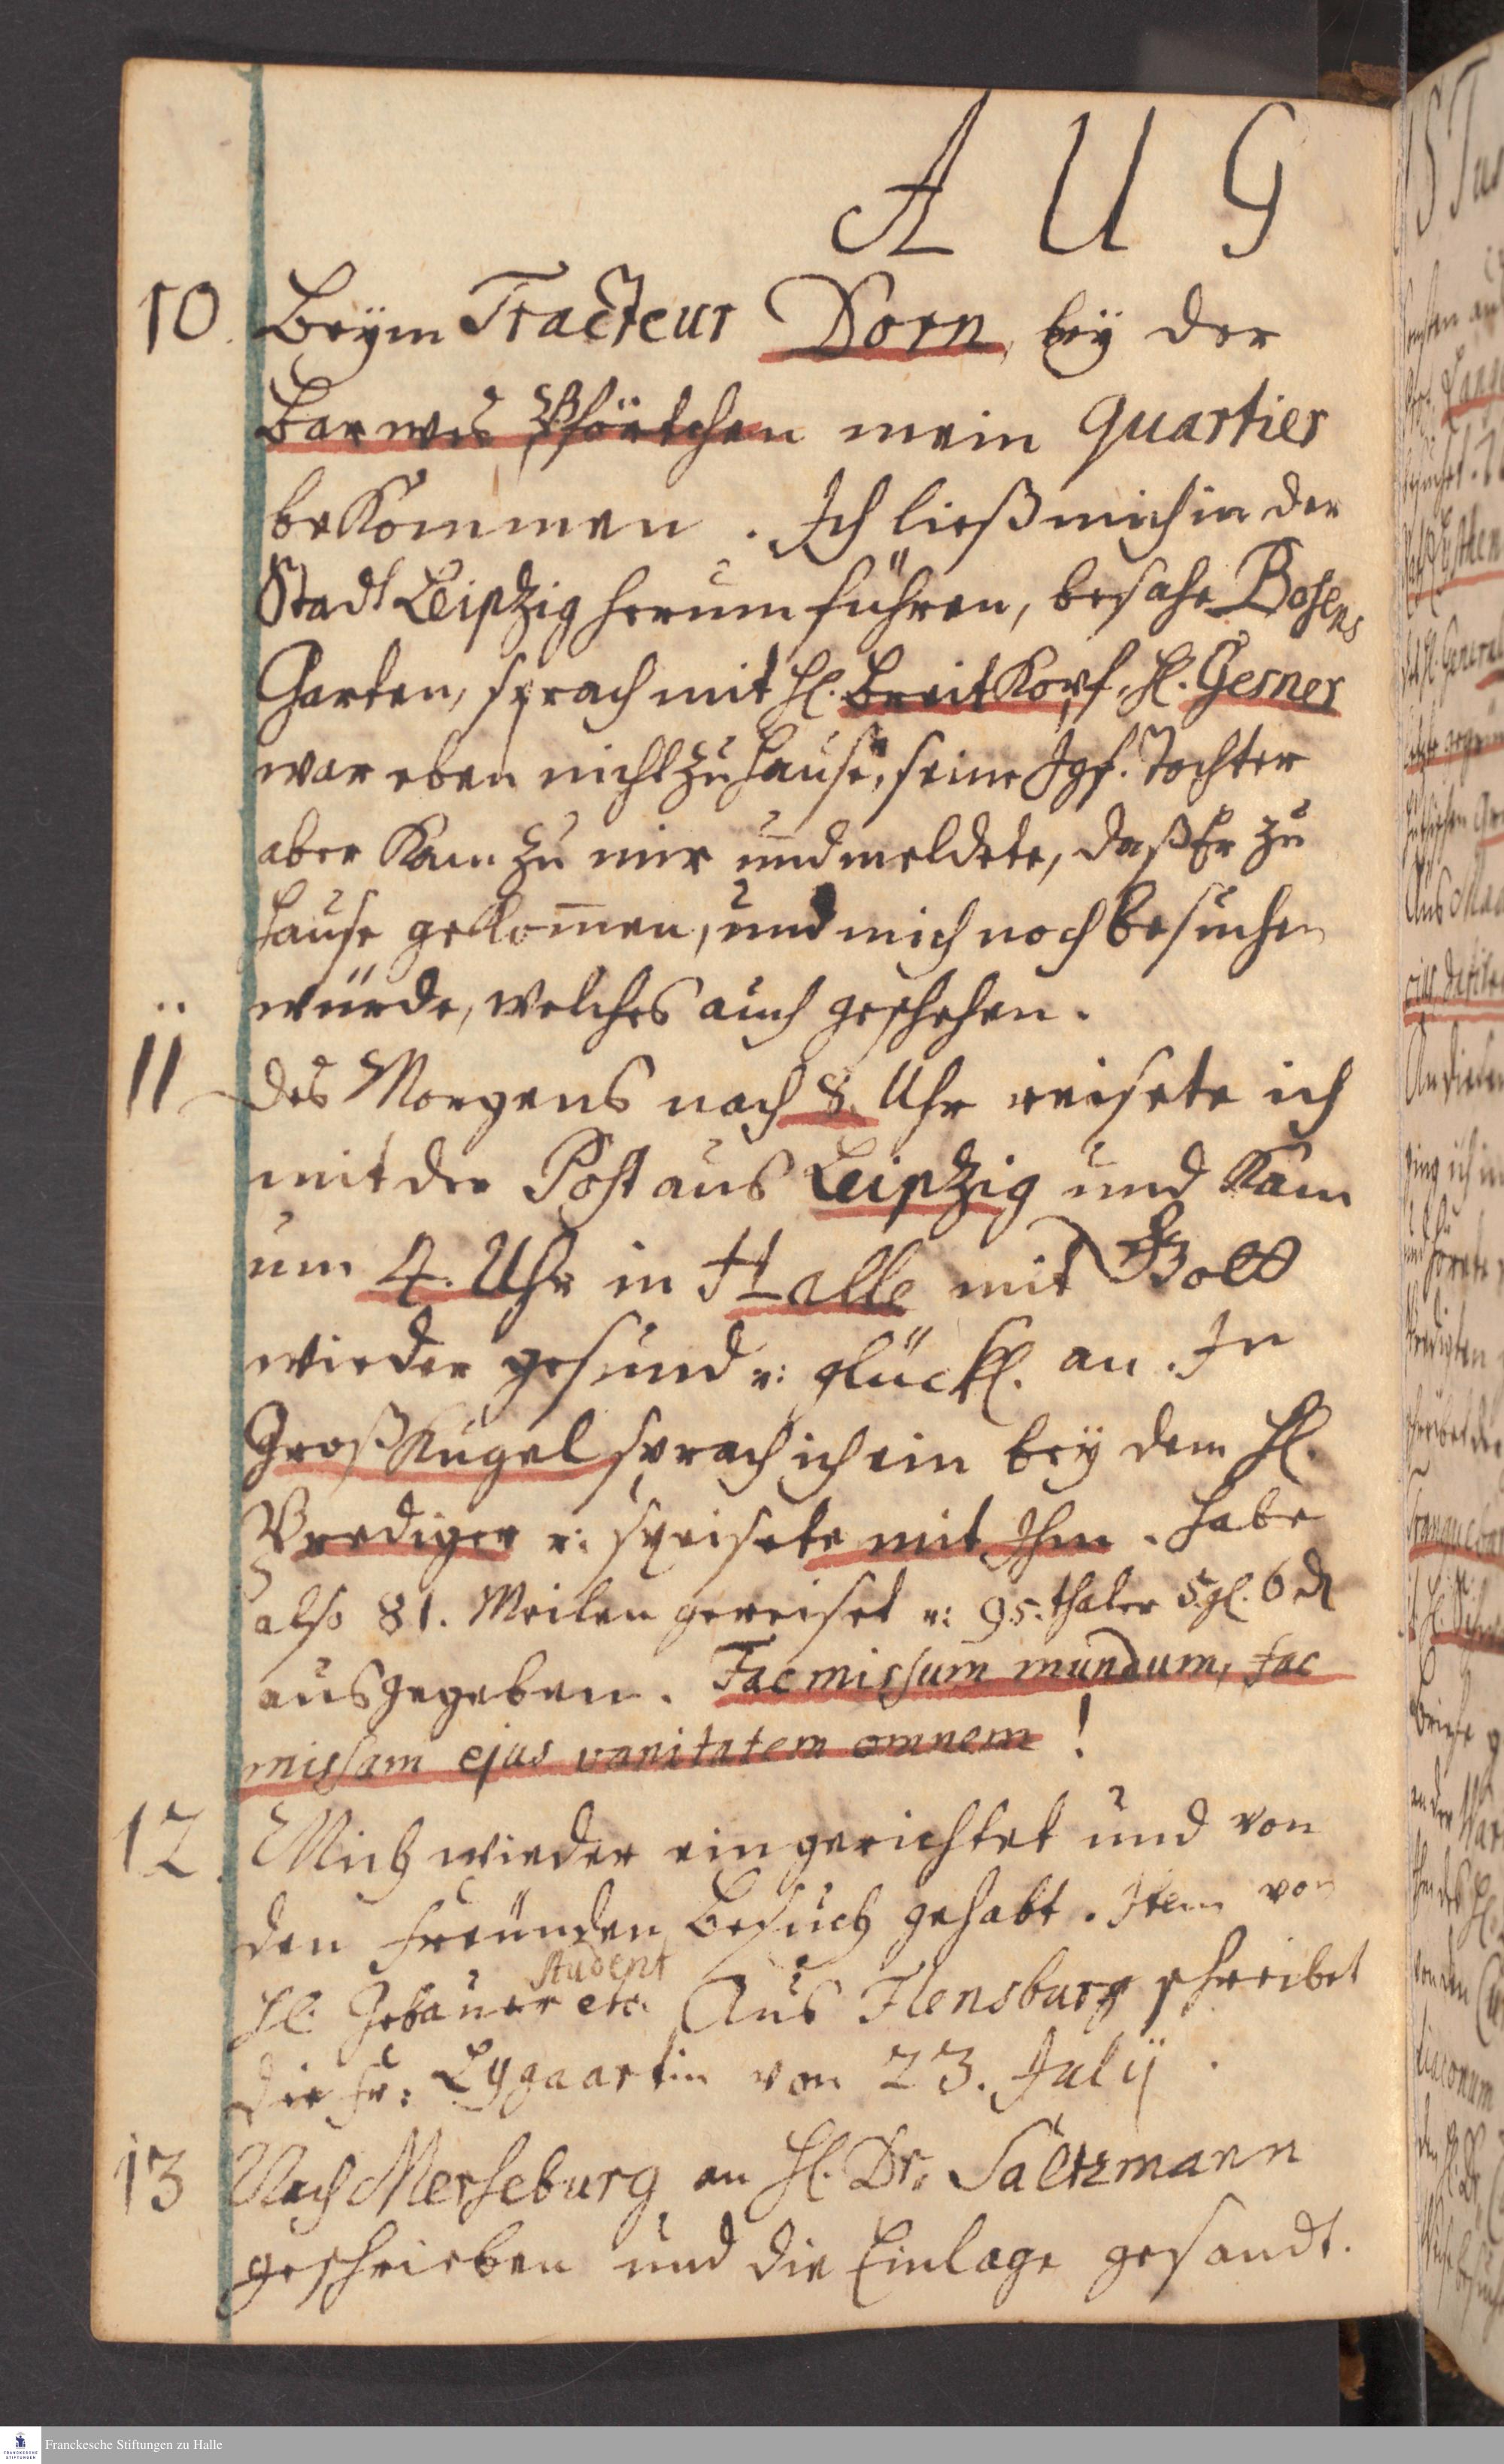 A U G
10. Beÿm Tracteur Dorn, beÿ der
Barwes Pförtchen mein quartier
beKommen. Ich ließ mich in der
Stadt Leipzig herum führen, besahe Bosens
Garten, sprach mit H. BreitKopf, H. Gesner
war eben nicht zu Hause, seine Jgf. Tochter
aber Kam zu mir und meldete, daß Er zu
Hause geKom̅en, und mich noch besuchen
würde, welches auch geschehen.
11 Des Morgens nach 8. Uhr reisete ich
mit der Post aus Leipzig und Kam
um 4. Uhr in Halle mit Gott
wieder gesund u: glückl. an. In
GroßKugel sprach ich ein beÿ dem H.
Prediger u: speisete mit Ihm. Habe
also 81. Meilen gereiset u: 95. thaler 5 gl. 6 d
ausgegeben. Fac missum mundum, fac
missam ejus vanitatem omnem!
12. Mich wieder eingerichtet und von
den Freunden Besuch gehabt. Item von
Student
H. Gebauer etc. Aus Flensburg schreibet
die Fr: Lygaartin vom 23. Julij.
13 Nach Merseburg an H. Dr. Saltzmann
geschrieben und die Einlage gesandt.
Franckesche Stiftungen zu Halle